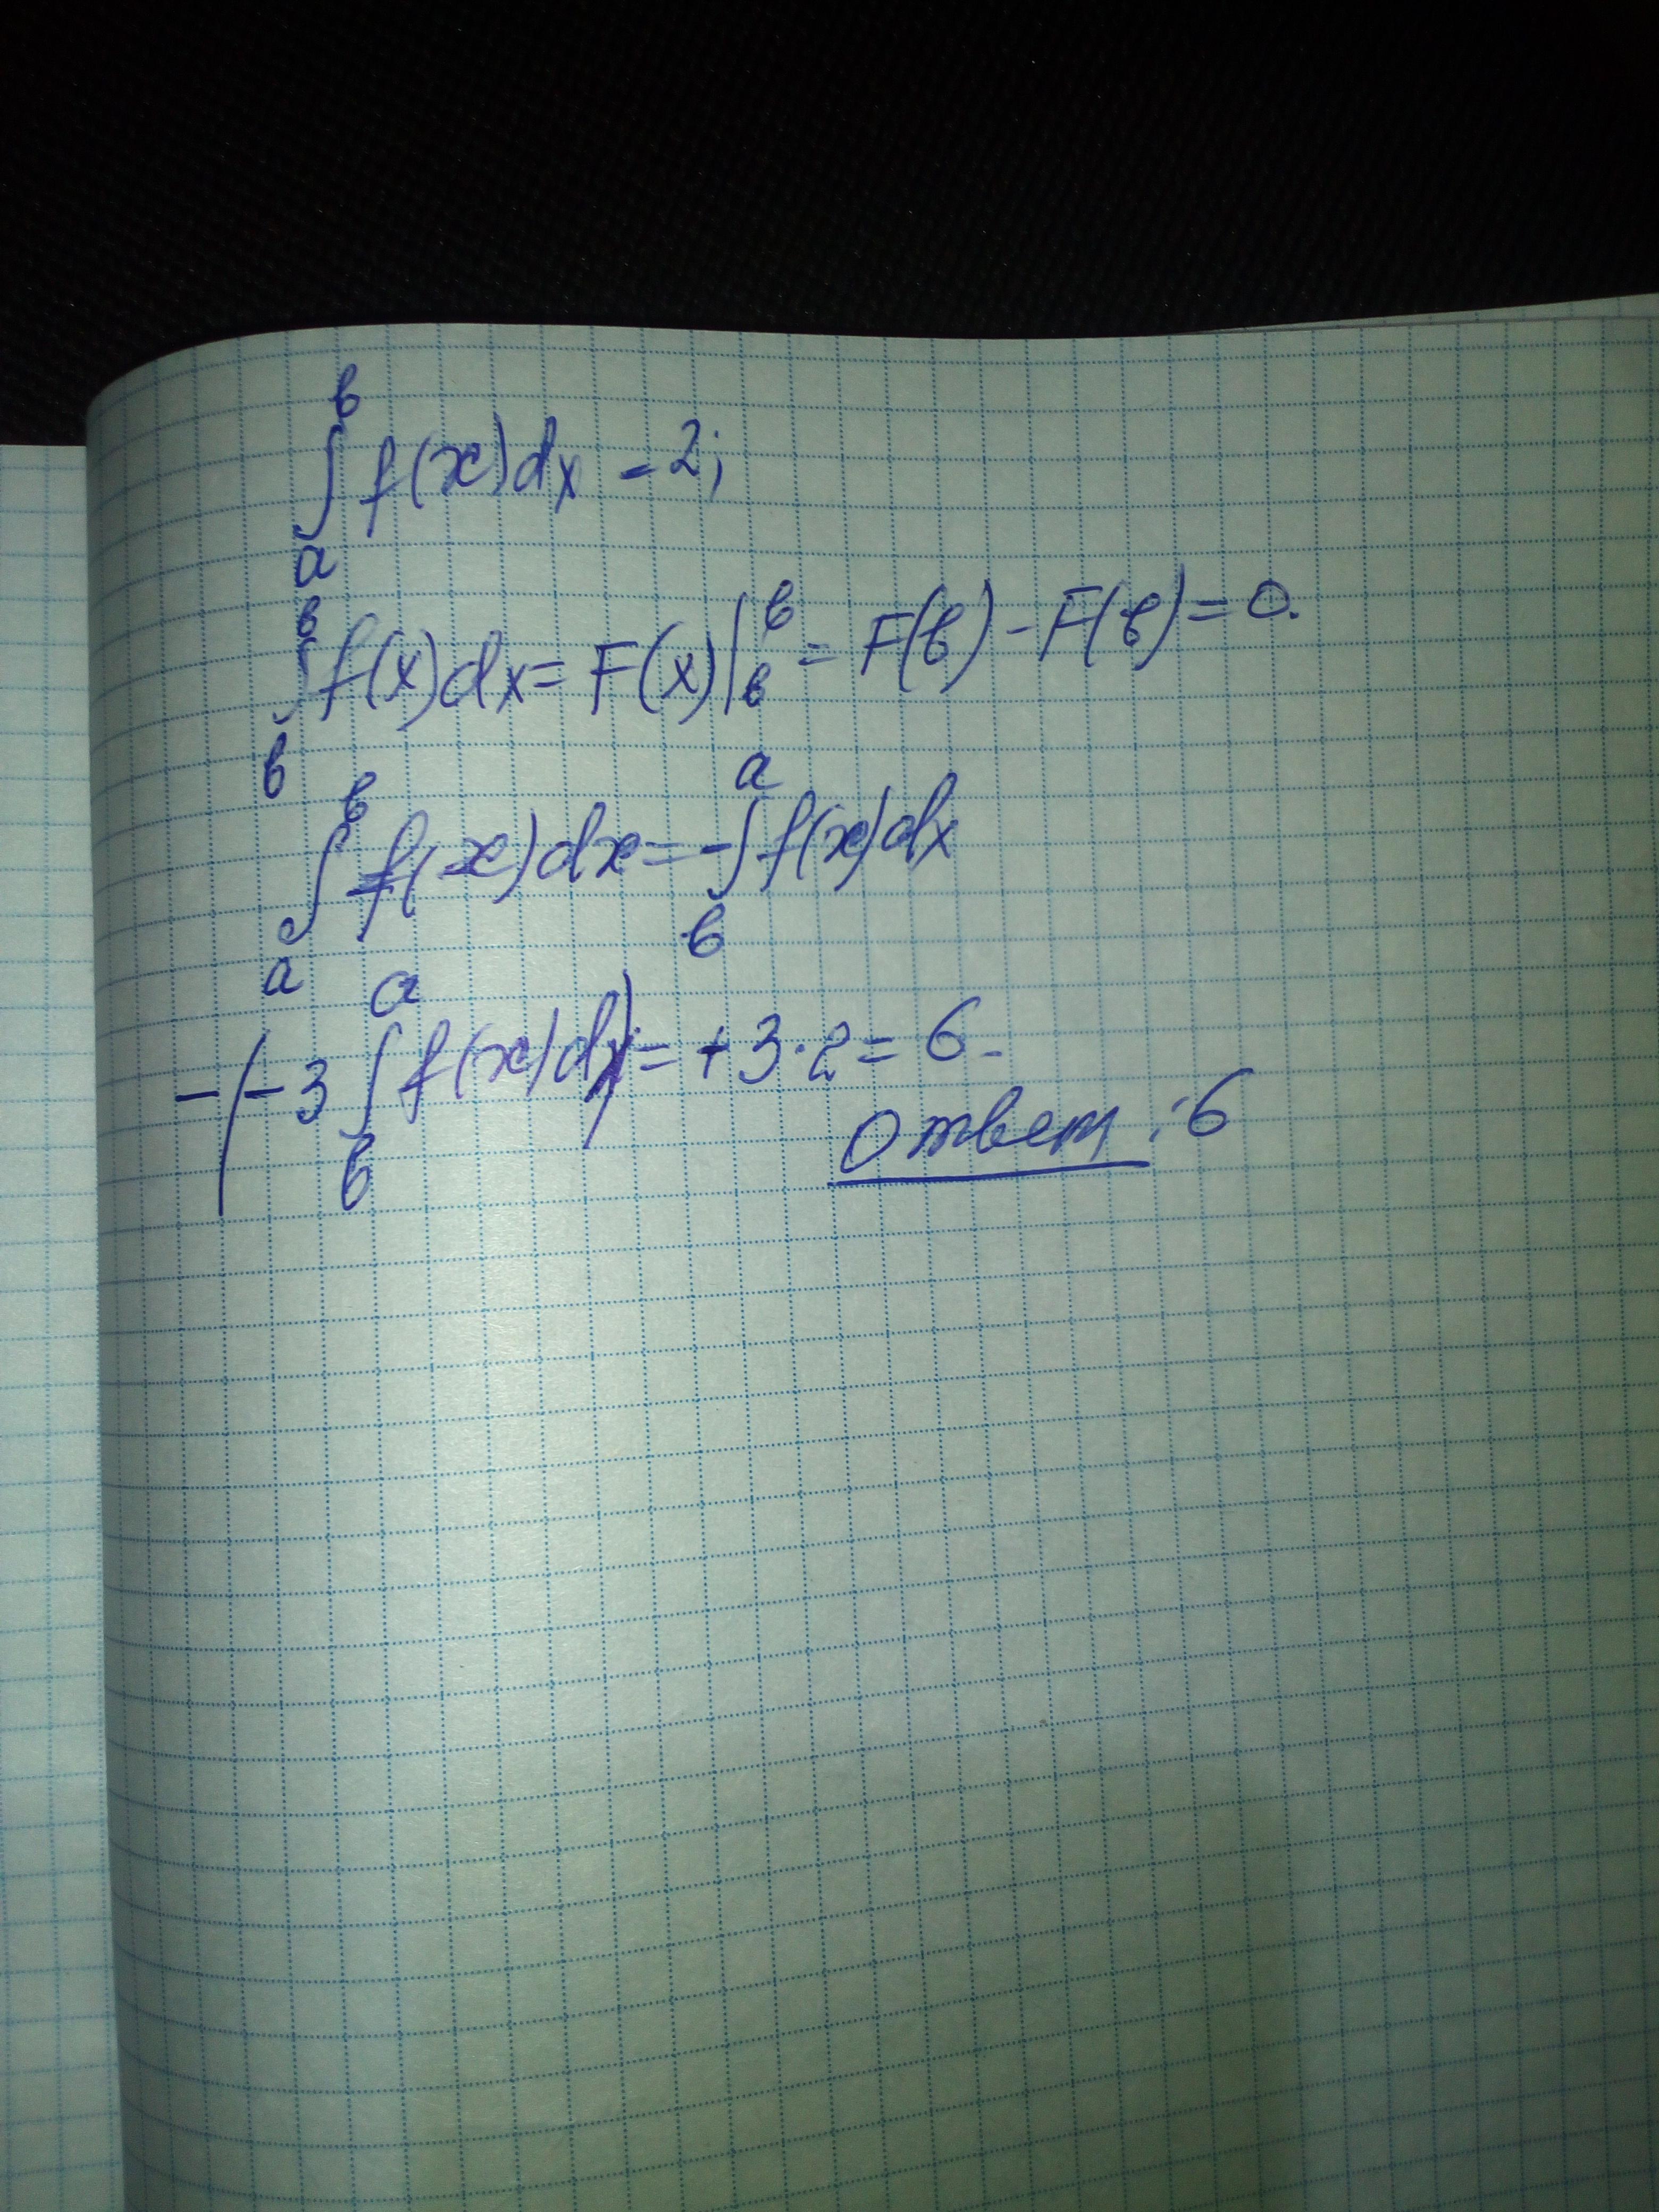 ∫ₐᵇ f(x)dx = 2;
∫ᵦᵇ f(x)dx = F(x)|ᵦᵇ = F(в) - F(в) = 0.
∫ₐᵇ f(x)dx = -∫ᵦᵃ f(x)dx
-(-3 ∫ᵦᵃ f(x)dx) = +3·2 = 6.
Ответ: 6